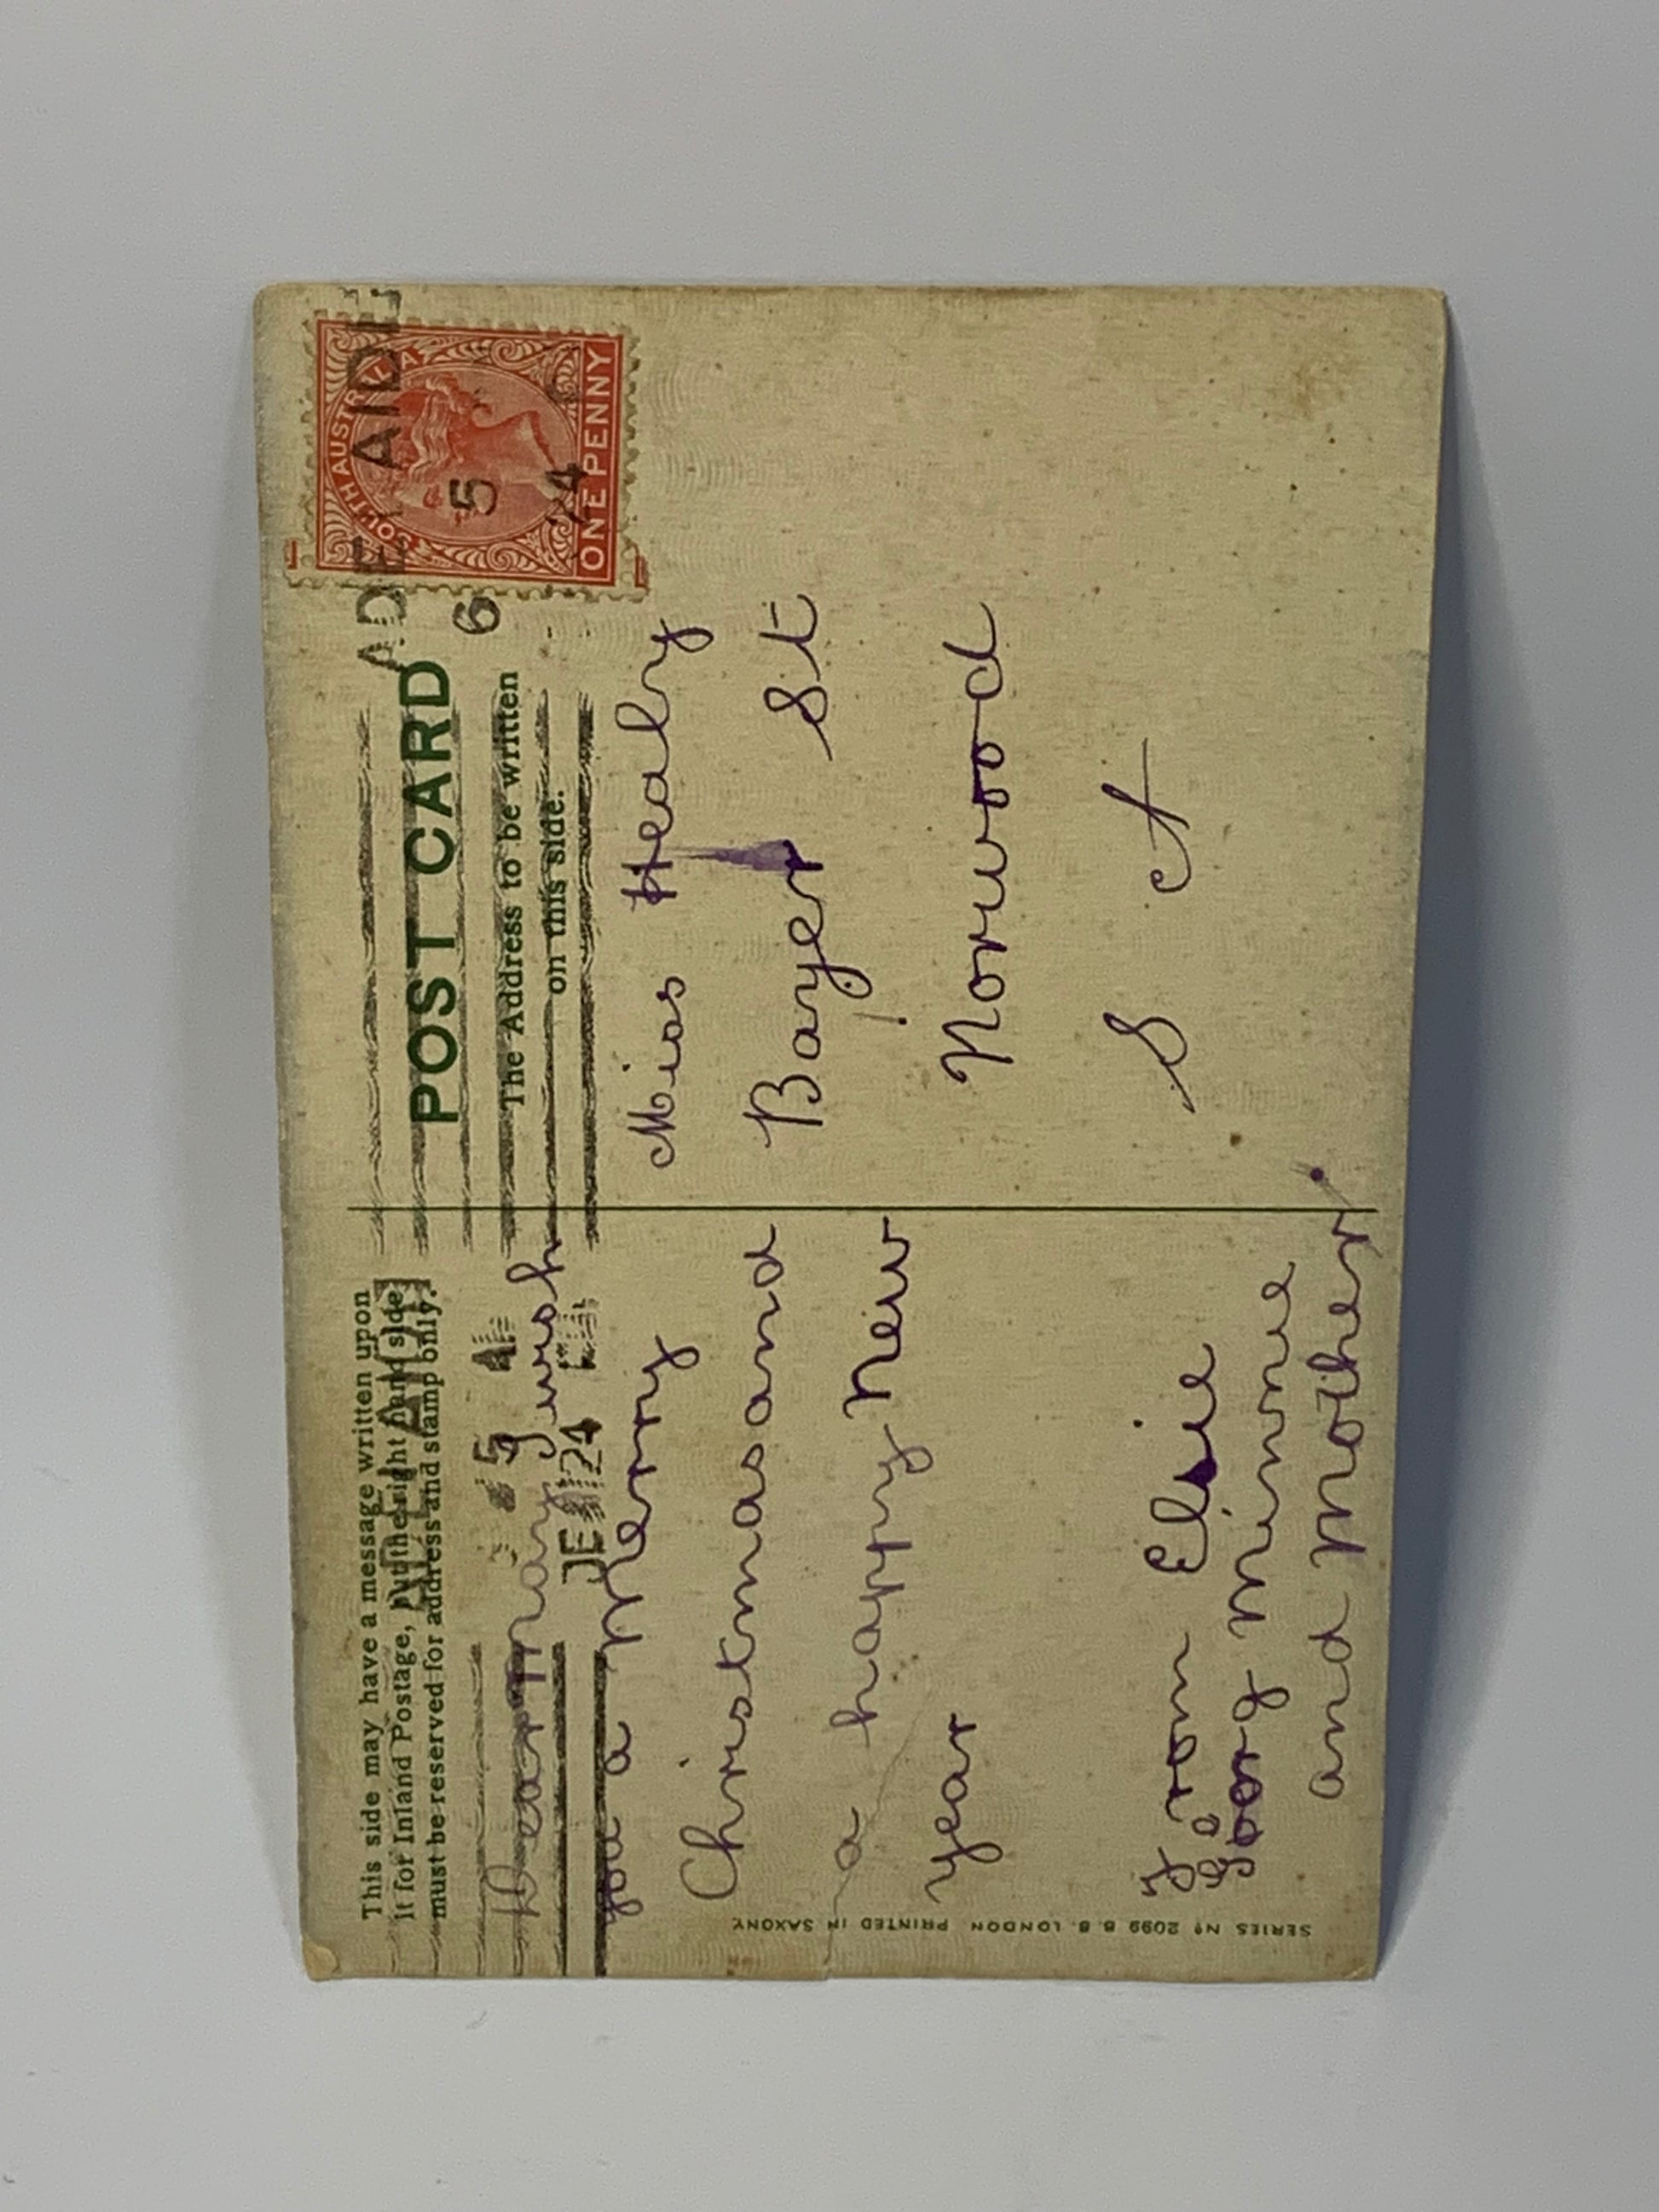 This side may have a message written upon
it for Inland Postage, but the right hand side
must be reserved for address and stamp only.
Dear Mary I wish
you a Merry
Christmas and
a happy New
year
From Elsie
Minnie
and Mother
SERIES Nº 2099 B. B. LONDON. PRINTED IN SAXONY
POST CARD
The Address to be written
on this side.
Miss Healy
Bayer St
Norwood
S A
SOUTH AUSTRALIA
ONE PENNY
ADELAIDE
6 5
24
5 A
DE 24